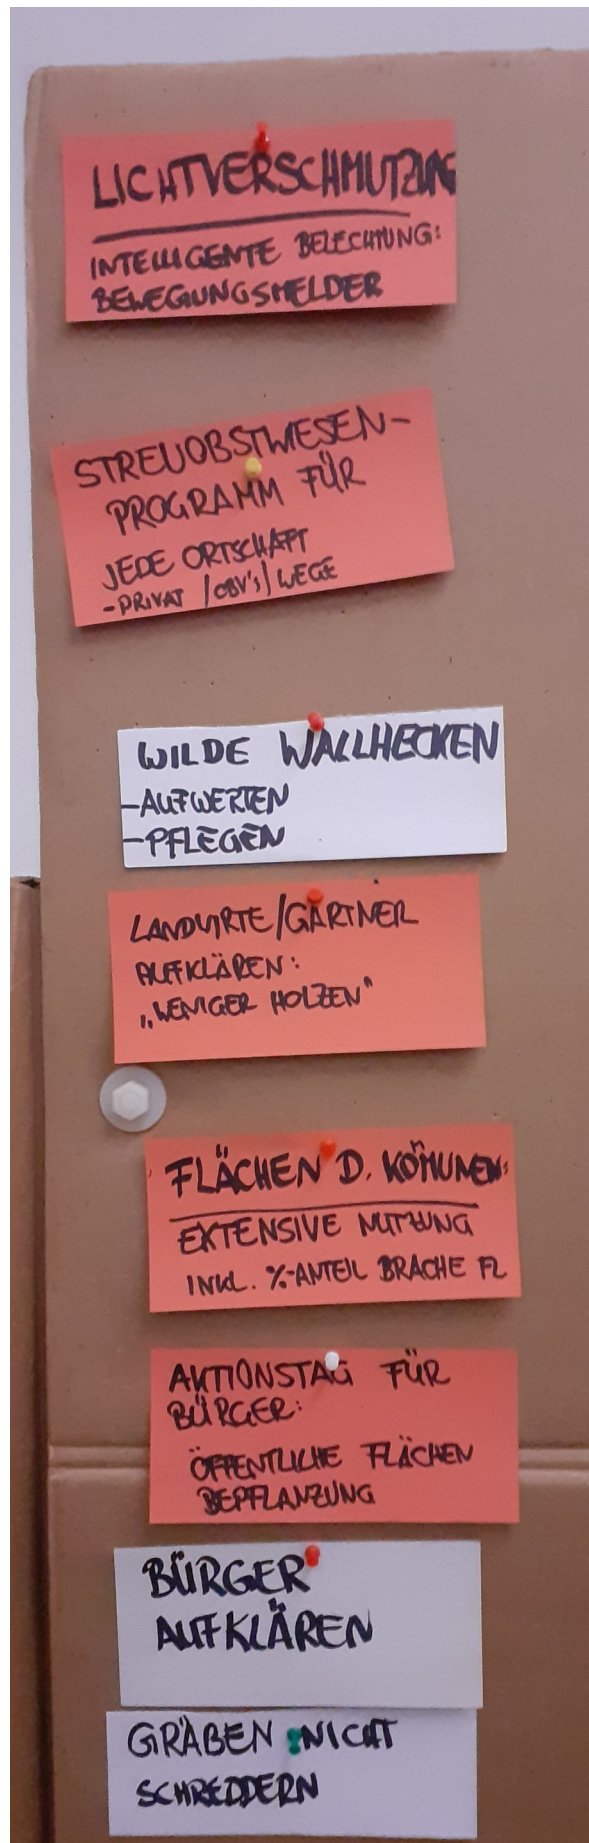 LICHTVERSCHMUTZUNG
INTELLIGENTE BELECHTUNG:
BEWEGUNGSMELDER
STREUOBSTWIESEN-
PROGRAMM FÜR
JEDE ORTSCHAFT
-PRIVAT /OBV's/ WEGE
WILDE WALLHECKEN
-AUFWERTEN
-PFLEGEN
LANDWIRTE/GÄRTNER
AUFKLÄREN:
„WENIGER HOLZEN“
FLÄCHEN D. KOMMUNEN:
EXTENSIVE NUTZUNG
INKL. %-ANTEIL BRACHE FL
AKTIONSTAG FÜR
BÜRGER:
ÖFFENTLICHE FLÄCHEN
BEPFLANZUNG
BÜRGER
AUFKLÄREN
GRÄBEN NICHT
SCHREDDERN